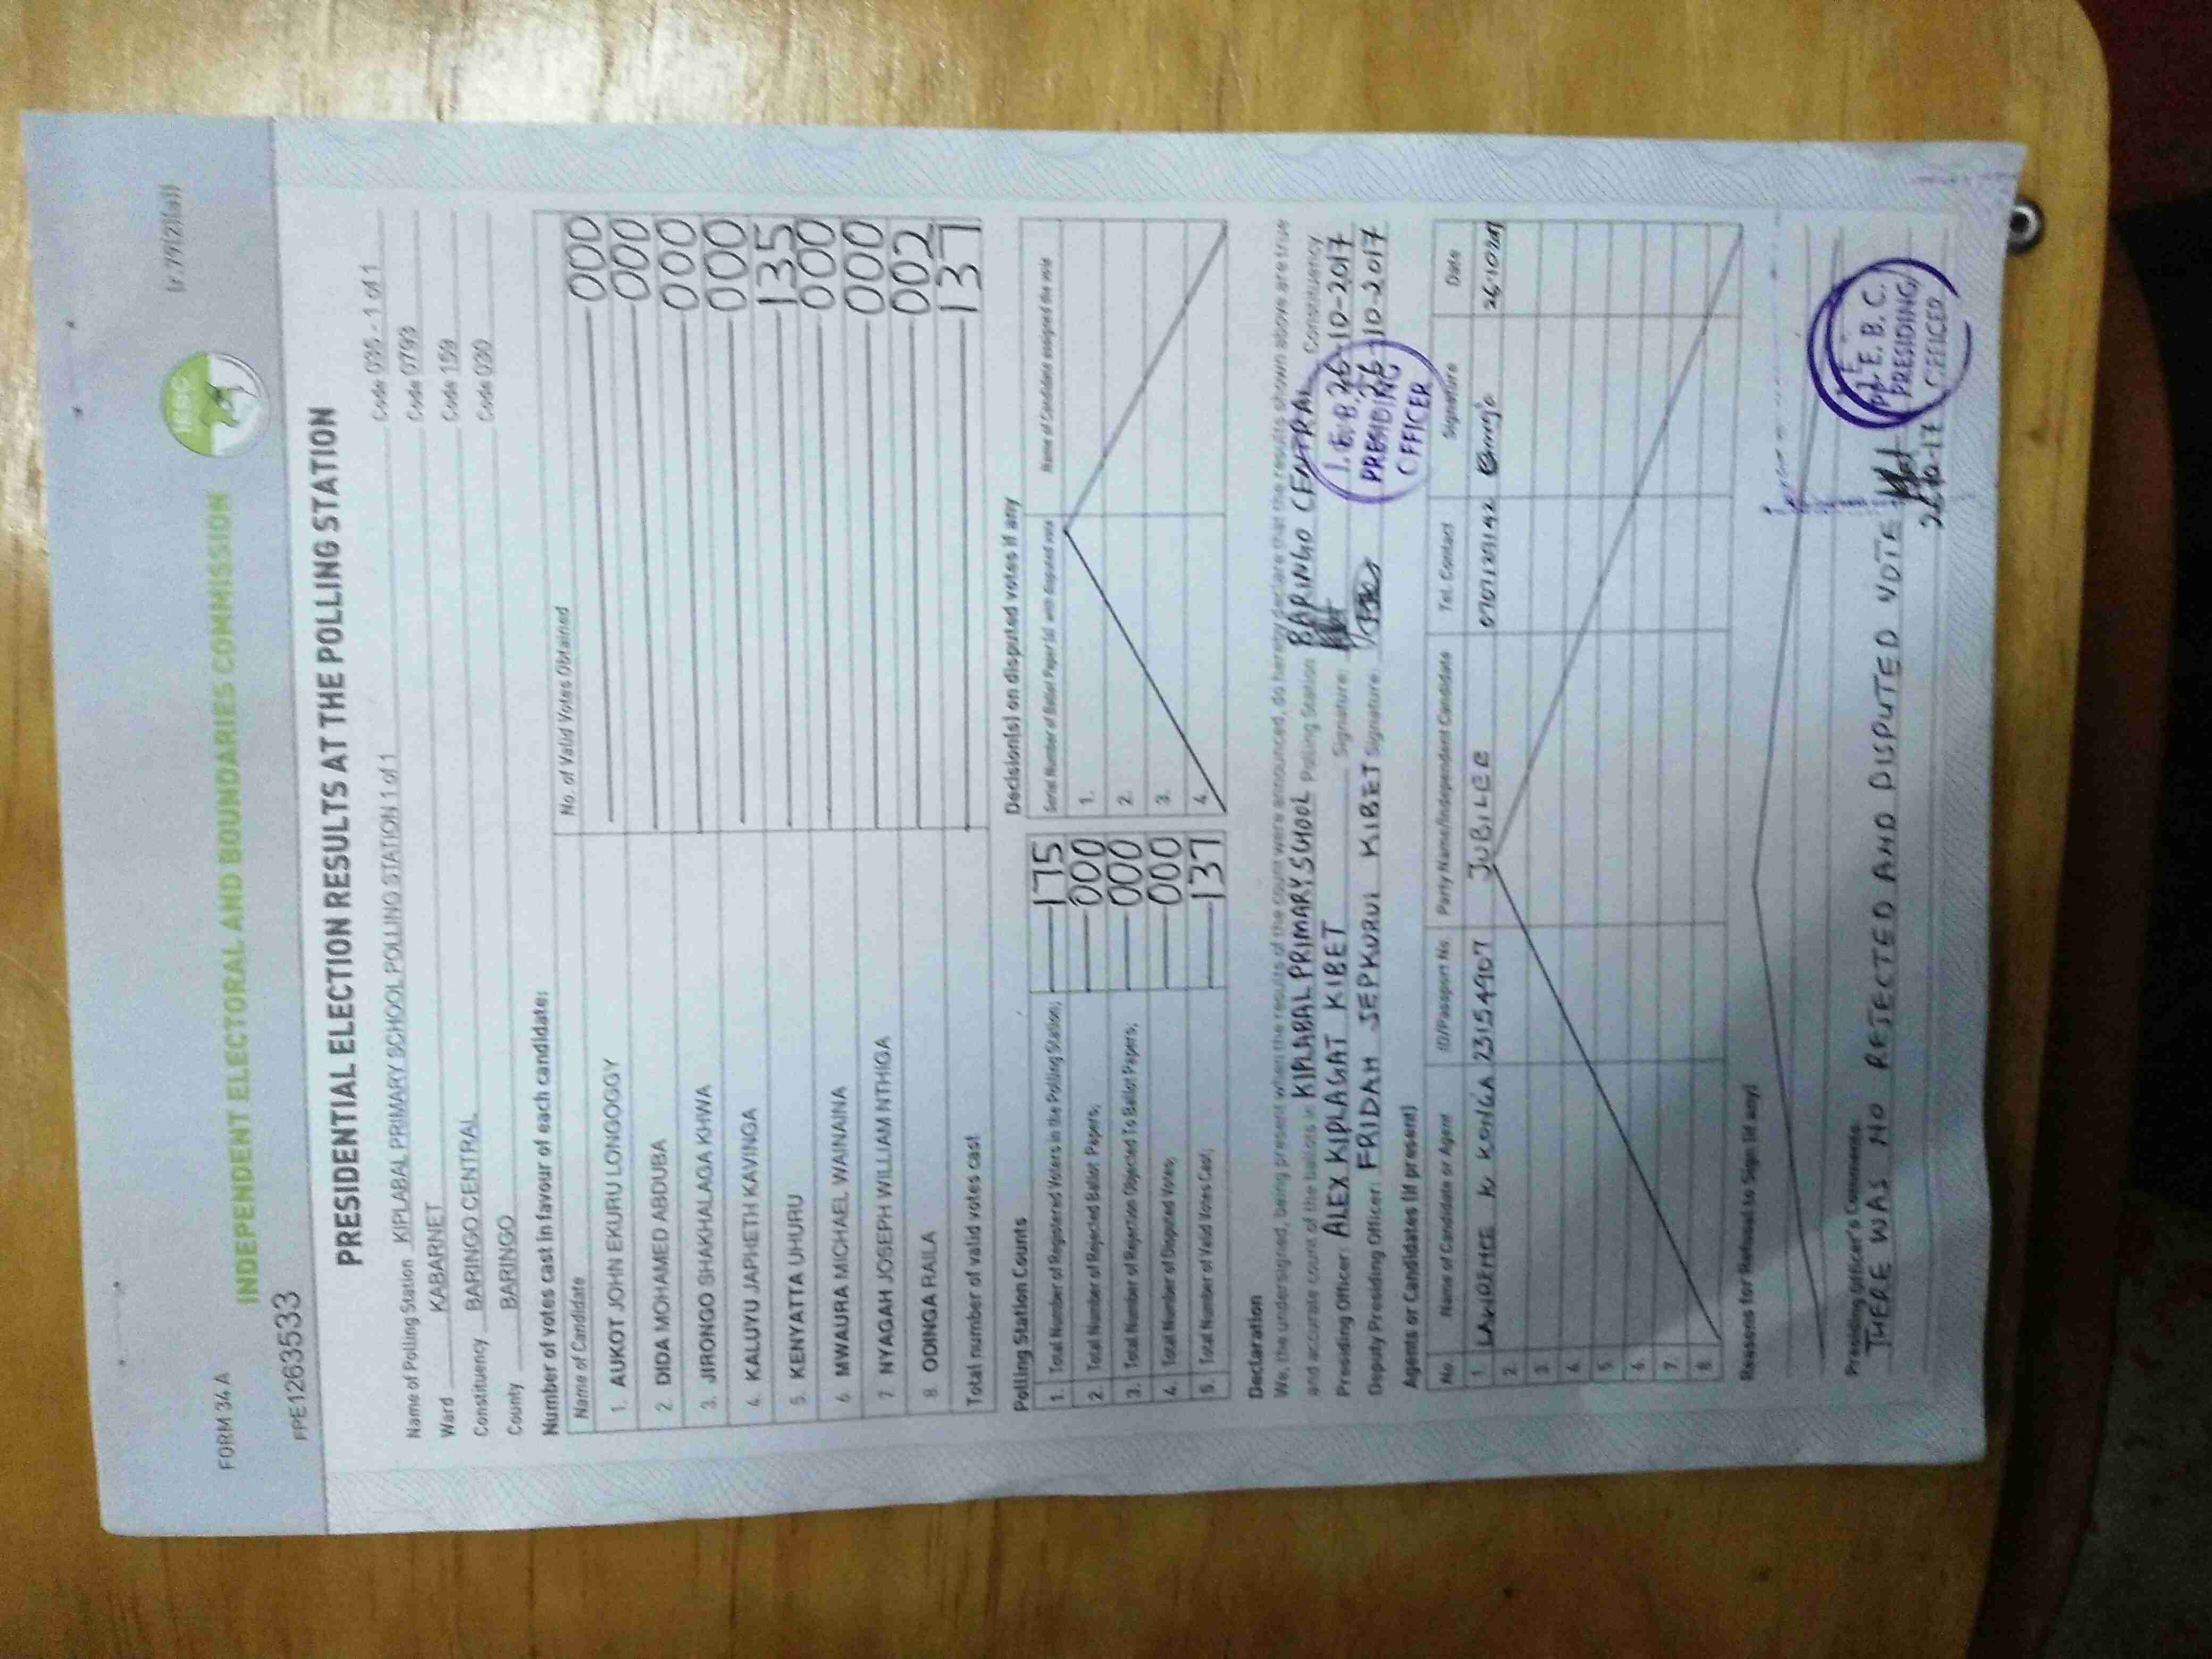 FORM 34 A
(r.79(2)(a))
IEBC
INDEPENDENT ELECTORAL AND BOUNDARIES COMMISSION
PRESIDENTIAL ELECTION RESULTS AT THE POLLING STATION
Name of Polling Station KIPLABAL PRIMARY SCHOOL POLLING STATION 1 of 1 Code 035 - 1 of 1
Ward KABARNET Code 0793
Constituency BARINGO CENTRAL Code 159
County BARINGO Code 030
Number of votes cast in favour of each candidate:
Name of Candidate No. of Valid Votes Obtained
1. AUKOT JOHN EKURU LONGOGGY 000
2. DIDA MOHAMED ABDUBA 000
3. JIRONGO SHAKHALAGA KHWA 000
4. KALUYU JAPHETH KAVINGA 000
5. KENYATTA UHURU 135
6. MWAURA MICHAEL WAINAINA 000
7. NYAGAH JOSEPH WILLIAM NTHIGA 000
8. ODINGA RAILA 002
Total number of valid votes cast 137
Polling Station Counts
1. Total Number of Registered Voters in the Polling Station; 175
2. Total Number of Rejected Ballot Papers; 000
3. Total Number of Rejection Objected To Ballot Papers; 000
4. Total Number of Disputed Votes; 000
5. Total Number of Valid Votes Cast; 137
Decision(s) on disputed votes if any
Serial Number of Ballot Paper(s) with disputed vote Name of Candidate assigned the vote
1.
2.
3.
4.
Declaration
We, the undersigned, being present when the results of the count were announced, do hereby declare that the results shown above are true
and accurate count of the ballots in KIPLABAL PRIMARY SCHOOL Polling Station BARINGO CENTRAL Constituency
Presiding Officer: ALEX KIPLAGAT KIBET Signature: 26-10-2017
Deputy Presiding Officer: FRIDAH JEPKURUI KIBET Signature: 26-10-2017
I.E.B.C.
PRESIDING
OFFICER
Agents or Candidates (if present)
No. Name of Candidate or Agent ID/Passport No. Party Name/Independent Candidate Tel. Contact Signature Date
1 LAWRENCE K KONGA 23154907 JUBILEE
2.
3.
4.
5.
6.
7.
8.
Reasons for Refusal to Sign (if any)
Presiding Officer's Comments
THERE WAS NO REJECTED AND DISPUTED VOTE
I.E.B.C.
PRESIDING
OFFICER